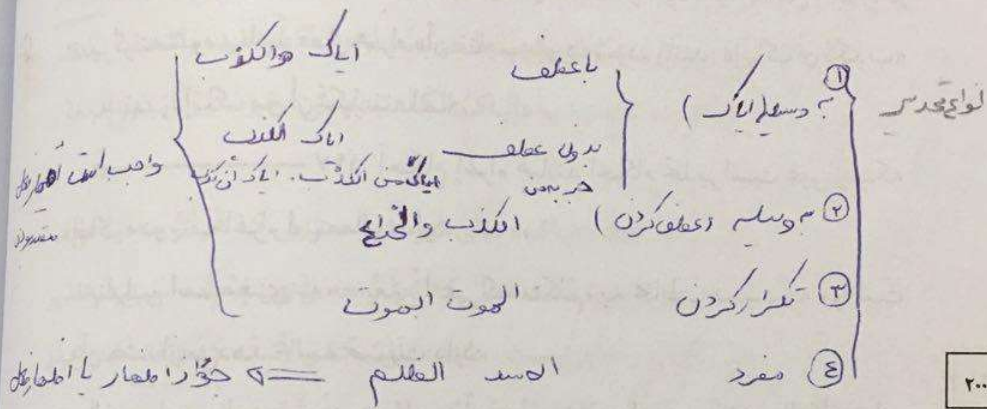 انواع تحذیر
① به وسیله ایاک) با عطف ایاک والکذب
بدون عطف ایاک الکذب
جر به من ایاک من الکذب. ایاک أن
واجب است اضمار
② به وسیله عطف کردن) الکذب والخداع
③ تکرار کردن الموت الموت
④ مفرد الاسد الظلم = جواز اضمار یا اظهار